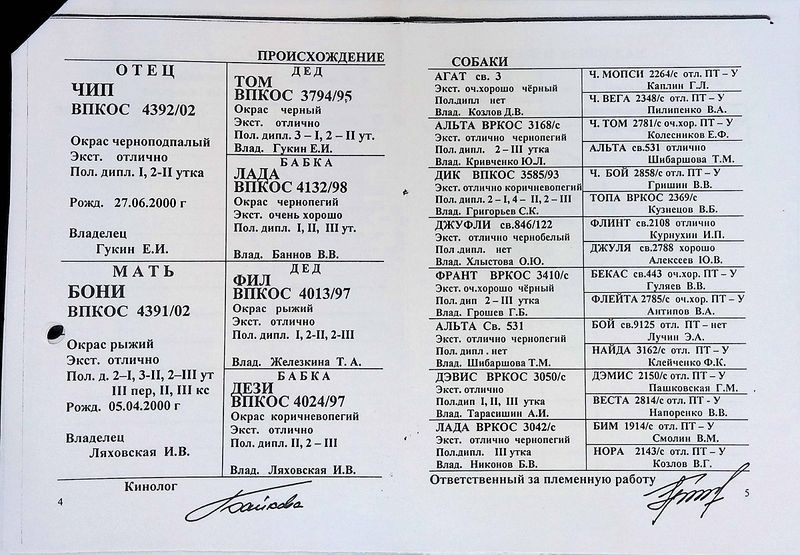 ПРОИСХОЖДЕНИЕ
ОТЕЦ
ЧИП
ВПКОС 4392/02
Окрас черноподпалый
Экст. отлично
Пол. дипл. I, 2-II утка
Рожд. 27.06.2000 г
Владелец
Гукин Е.И.
ДЕД
ТОМ
ВПКОС 3794/95
Окрас черный
Экст. отлично
Пол. дипл. 3 – I, 2 – II ут.
Влад. Гукин Е.И.
БАБКА
ЛАДА
ВПКОС 4132/98
Окрас чернопегий
Экст. очень хорошо
Пол. дипл. I, II, III ут.
Влад. Баннов В.В.
МАТЬ
БОНИ
ВПКОС 4391/02
Окрас рыжий
Экст. отлично
Пол. д. 2–I, 3-II, 2–III ут
III пер, II, III кс
Рожд. 05.04.2000 г
Владелец
Ляховская И.В.
ДЕД
ФИЛ
ВПКОС 4013/97
Окрас рыжий
Экст. отлично
Пол. дипл. I, 2-II, 2-III
Влад. Железкина Т. А.
БАБКА
ДЕЗИ
ВПКОС 4024/97
Окрас коричневопегий
Экст. отлично
Пол. дипл. II, 2 – III
Влад. Ляховская И.В.
Кинолог
4
СОБАКИ
АГАТ св. 3
Экст. оч.хорошо чёрный
Пол.дипл нет
Влад. Козлов Д.В.
Ч. МОПСИ 2264/с отл. ПТ – У
Каплин Г.Л.
Ч. ВЕГА 2348/с отл. ПТ – У
Пилипенко В.А.
АЛЬТА ВРКОС 3168/с
Экст. отлично чернопегий
Пол.дипл. 2 – III утка
Влад. Кривченко Ю.Л.
Ч. ТОМ 2781/с оч.хор. ПТ – У
Колесников Е.Ф.
АЛЬТА св.531 отлично
Шибаршова Т.М.
ДИК ВПКОС 3585/93
Экст. отлично коричневопегий
Пол. дипл. 2 – I, 4 – II, 2 – III
Влад. Григорьев С.К.
Ч. БОЙ 2858/с отл. ПТ – У
Гришин В.В.
ТОПА ВРКОС 2369/с
Кузнецов В.Б.
ДЖУФЛИ св.846/122
Экст. отлично чернобелый
Пол .дипл. нет
Влад. Хлыстова О.Ю.
ФЛИНТ св.2108 отлично
Курнухин И.П.
ДЖУЛЯ св.2788 хорошо
Алексеев Ю.В.
ФРАНТ ВРКОС 3410/с
Экст. оч.хорошо чёрный
Пол. дип 2 – III утка
Влад. Грошев Г.Б.
БЕКАС св.443 оч.хор. ПТ – У
Гуляев В.В.
ФЛЕЙТА 2785/с оч.хор. ПТ – У
Антипов В.А.
АЛЬТА Св. 531
Экст. отлично чернопегий
Пол. дипл . нет
Влад. Шибаршова Т.М.
БОЙ св.9125 отл. ПТ – нет
Лучин Э.А.
НАЙДА 3162/с отл. ПТ – У
Клейченко Ф.К.
ДЭВИС ВРКОС 3050/с
Экст.отлично
Пол.дип I, II, III утка
Влад. Тарасишин А.И.
ДЭМИС 2150/с отл. ПТ – У
Пашковская Г.М.
ВЕСТА 2814/с отл. ПТ – У
Напоренко В.В.
ЛАДА ВРКОС 3042/с
Экст. отлично чернопегий
Пол.дипл. III утка
Влад. Никонов Б.В.
БИМ 1914/с отл. ПТ – У
Смолин В.М.
НОРА 2143/с отл. ПТ – У
Козлов В.Г.
Ответственный за племенную работу
5